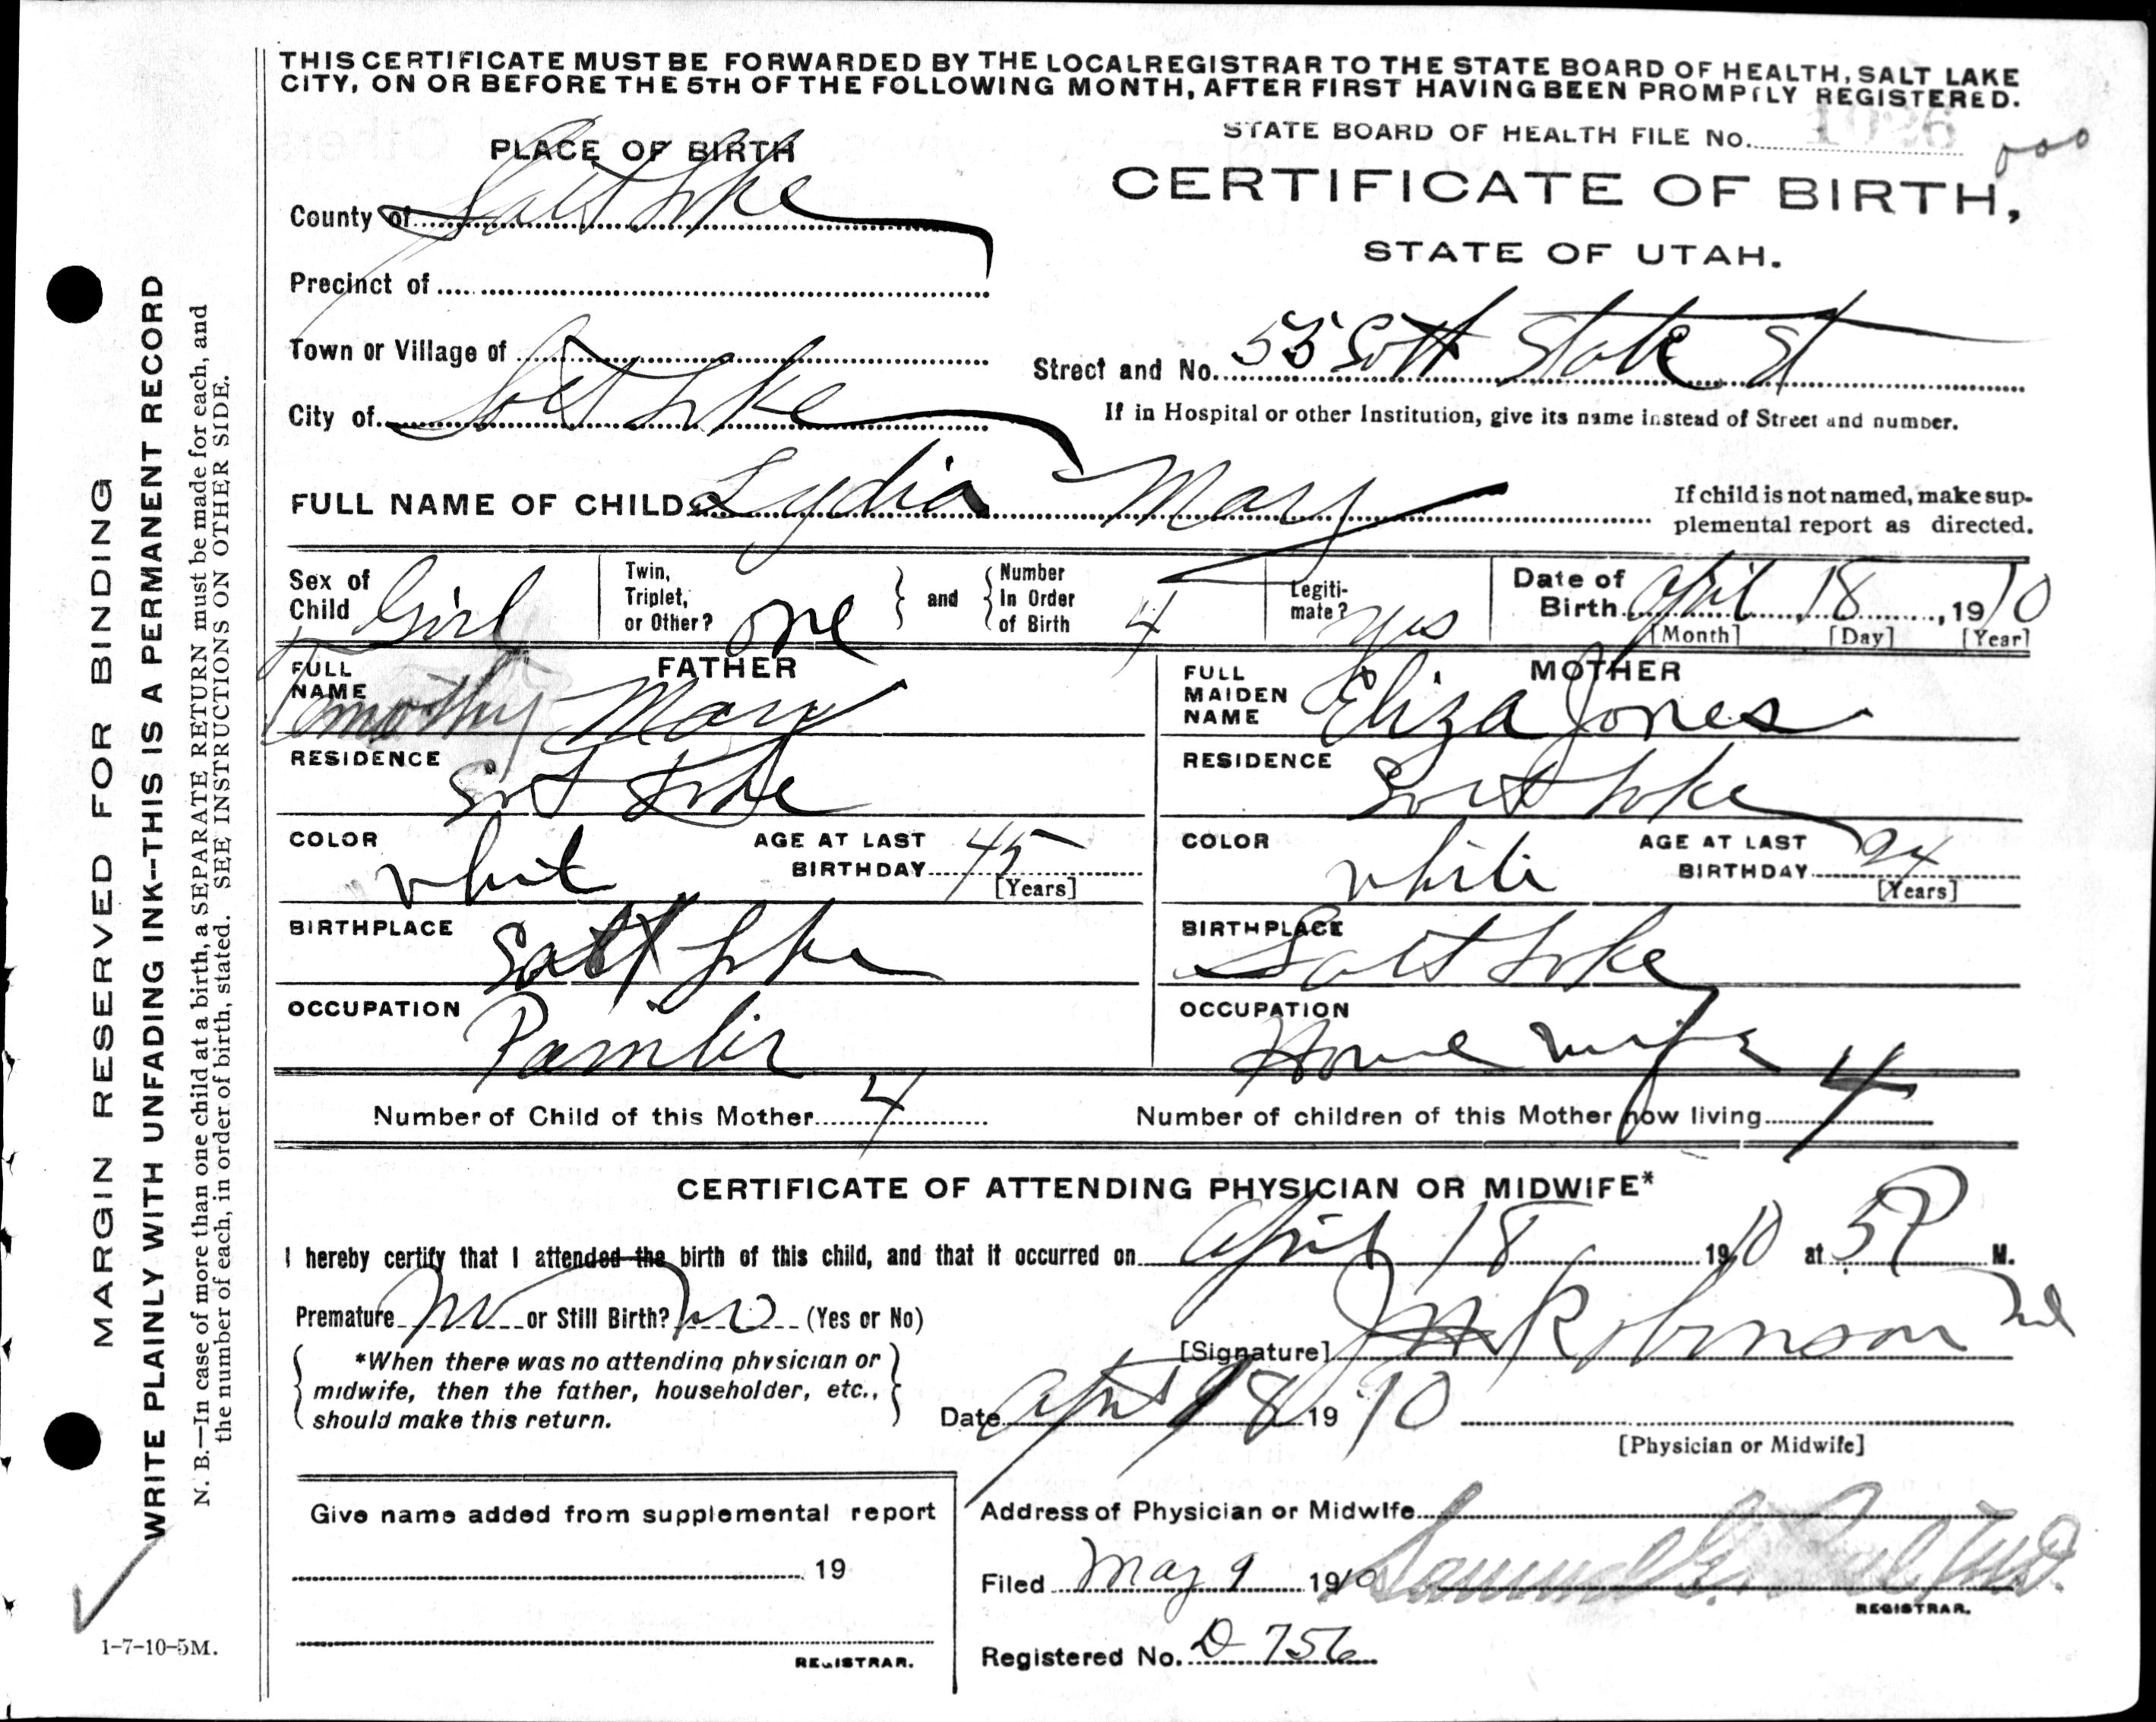 THIS CERTIFICATE MUST BE FORWARDED BY THE LOCAL REGISTRAR TO THE STATE BOARD OF HEALTH, SALT LAKE
CITY, ON OR BEFORE THE 5TH OF THE FOLLOWING MONTH, AFTER FIRST HAVING BEEN PROMPTLY REGISTERED.
STATE BOARD OF HEALTH FILE No. 1026
PLACE OF BIRTH
CERTIFICATE OF BIRTH,
STATE OF UTAH.
County of Salt Lake
Precinct of
Town or Village of
Street and No. State St
City of Salt Lake
If in Hospital or other Institution, give its name instead of Street and number.
FULL NAME OF CHILD Lydia Mary
If child is not named, make sup-
plemental report as directed.
Sex of Child Girl
Twin, Triplet, or Other? one
and
Number In Order of Birth 4
Legiti- mate? yes
Date of Birth April 18, 1910
[Month] [Day] [Year]
FATHER
FULL NAME Timothy Mary
RESIDENCE Salt Lake
COLOR whit
AGE AT LAST BIRTHDAY 45
[Years]
BIRTHPLACE Salt Lake
OCCUPATION
MOTHER
FULL MAIDEN NAME Eliza Jones
RESIDENCE Salt Lake
COLOR white
AGE AT LAST BIRTHDAY
[Years]
BIRTHPLACE Salt Lake
OCCUPATION House wife
Number of Child of this Mother 4
Number of children of this Mother now living 4
CERTIFICATE OF ATTENDING PHYSICIAN OR MIDWIFE*
I hereby certify that I attended the birth of this child, and that it occurred on April 18 1910 at 5 P M.
Premature no or Still Birth? no (Yes or No)
*When there was no attending physician or
midwife, then the father, householder, etc.,
should make this return.
[Signature] Robinson Md
Date April 18 1910
[Physician or Midwife]
Give name added from supplemental report
19
REGISTRAR.
Address of Physician or Midwife
Filed May 9 1910 Samuel G. Paul, M.D.
REGISTRAR.
Registered No. D 756
MARGIN RESERVED FOR BINDING
WRITE PLAINLY WITH UNFADING INK--THIS IS A PERMANENT RECORD
N. B.—In case of more than one child at a birth, a SEPARATE RETURN must be made for each, and
the number of each, in order of birth, stated. SEE INSTRUCTIONS ON OTHER SIDE.
1-7-10-5M.